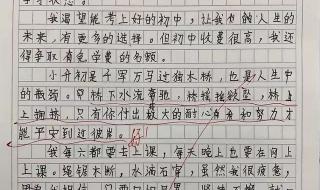 我渴望能考上好的初中，让我
人生的
未来，有更多的选择。但初中收费很高，我还
得争取有免学费的名额。
小升初是千军万马过独木桥，也是人生中
的瓶颈。只桥下水流湍驰，桥摇摇欲坠，桥上
上拥挤，只有你付出极大的耐心自有和努力才
能平安到过彼岸。好！
我每六都要去上课，每天晚上也要在网上
上课。绳锯木断，水滴石穿，虽然我很疲惫，